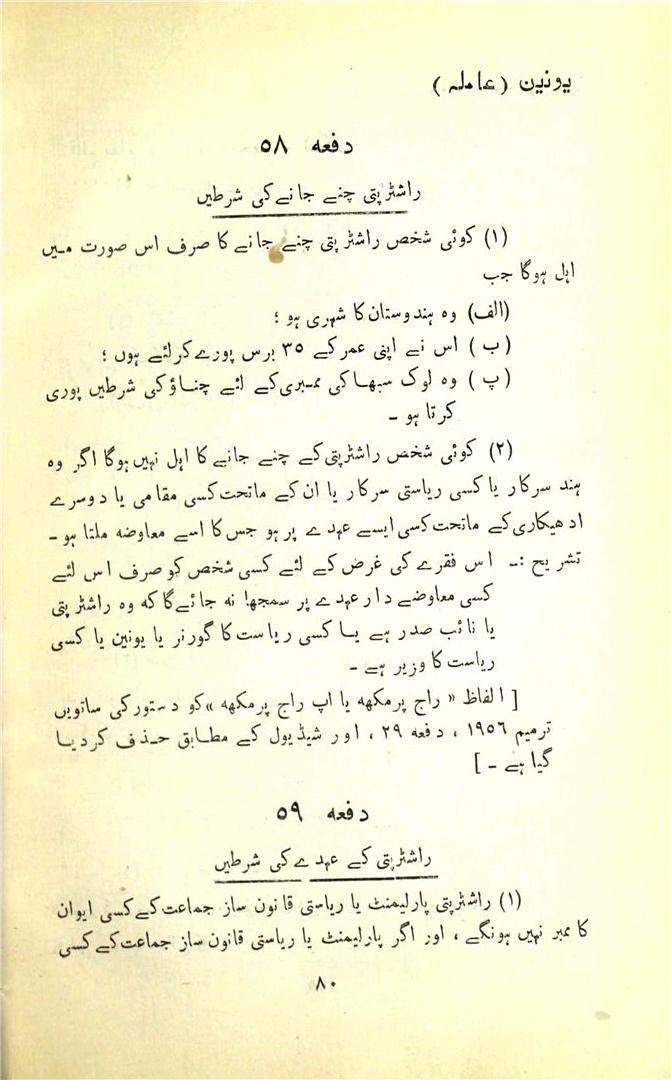 یونین (عاملہ)
دفعہ ۵۸
راشٹرپتی چنے جانے کی شرطیں
(۱) کوئی شخص راشٹرپتی چنے جانے کا صرف اس صورت میں
اہل ہوگا جب
(الف) وہ ہندوستان کا شہری ہو ؛
(ب) اس نے اپنی عمر کے ۳۵ برس پورے کرلئے ہوں ؛
(پ) وہ لوک سبھا کی ممبری کے لئے چناؤ کی شرطیں پوری
کرتا ہو ۔
(۲) کوئی شخص راشٹرپتی کے چنے جانے کا اہل نہیں ہوگا اگر وہ
ہند سرکار یا کسی ریاستی سرکار یا ان کے ماتحت کسی مقامی یا دوسرے
ادھیکاری کے ماتحت کسی ایسے عہدے پر ہو جس کا اسے معاوضہ ملتا ہو ۔
تشریح :۔ اس فقرے کی غرض کے لئے کسی شخص کو صرف اس لئے
کسی معاوضے دار عہدے پر سمجھا نہ جائے گا کہ وہ راشٹرپتی
یا نائب صدر ہے یا کسی ریاست کا گورنر یا یونین یا کسی
ریاست کا وزیر ہے ۔
[ الفاظ « راج پرمکھ یا اپ راج پرمکھ » کو دستور کی ساتویں
ترمیم ۱۹۵۶ ، دفعہ ۲۹ ، اور شیڈیول کے مطابق حذف کردیا
گیا ہے ۔ ]
دفعہ ۵۹
راشٹرپتی کے عہدے کی شرطیں
(۱) راشٹرپتی پارلیمنٹ یا ریاستی قانون ساز جماعت کے کسی ایوان
کا ممبر نہیں ہونگے ، اور اگر پارلیمنٹ یا ریاستی قانون ساز جماعت کے کسی
۸۰